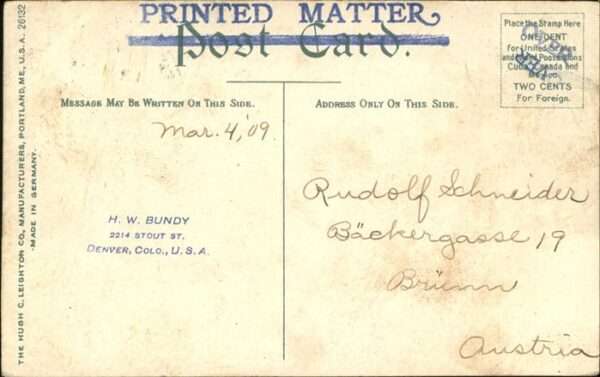 PRINTED MATTER
Post Card.
Place the Stamp Here
ONE CENT
for United States
and Possessions
Cuba, Canada and
Mexico
TWO CENTS
For Foreign.
MESSAGE MAY BE WRITTEN ON THIS SIDE.
ADDRESS ONLY ON THIS SIDE.
Mar. 4, '09
H. W. BUNDY
2214 STOUT ST.
DENVER, COLO., U.S.A.
Rudolf Schneider
Bäckergasse 19
Brünn
Austria
THE HUGH C. LEIGHTON CO., MANUFACTURERS, PORTLAND, ME., U.S.A. 26132
MADE IN GERMANY.